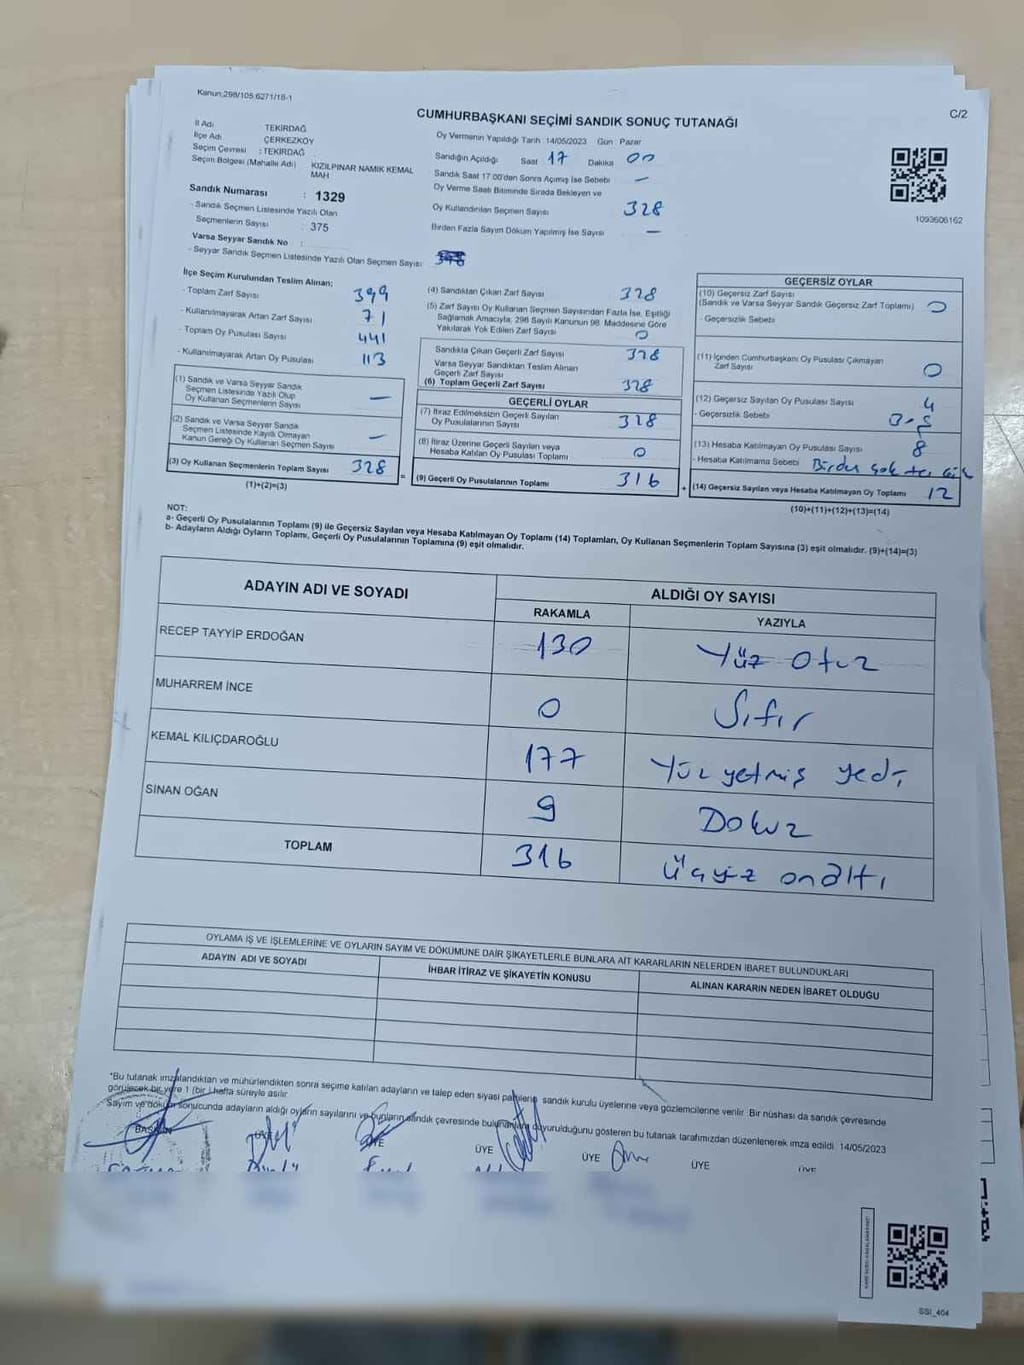 Kanun:298/105,6271/18-1
C/2
CUMHURBAŞKANI SEÇİMİ SANDIK SONUÇ TUTANAĞI
İl Adı TEKİRDAĞ
İlçe Adı ÇERKEZKÖY
Seçim Çevresi : TEKİRDAĞ
Seçim Bölgesi (Mahalle Adı) KIZILPINAR NAMIK KEMAL MAH
Sandık Numarası : 1329
- Sandık Seçmen Listesinde Yazılı Olan
Seçmenlerin Sayısı : 375
Varsa Seyyar Sandık No :
- Seyyar Sandık Seçmen Listesinde Yazılı Olan Seçmen Sayısı
Oy Vermenin Yapıldığı Tarih :14/05/2023 Gün : Pazar
Sandığın Açıldığı Saat 17 Dakika 00
Sandık Saat 17:00'den Sonra Açımış İse Sebebi —
Oy Verme Saati Bitiminde Sırada Bekleyen ve
Oy Kullandırılan Seçmen Sayısı 328
Birden Fazla Sayım Döküm Yapılmış İse Sayısı —
1093606162
İlçe Seçim Kurulundan Teslim Alınan;
- Toplam Zarf Sayısı 399
- Kullanılmayarak Artan Zarf Sayısı 71
- Toplam Oy Pusulası Sayısı 441
- Kullanılmayarak Artan Oy Pusulası 113
(1) Sandık ve Varsa Seyyar Sandık
Seçmen Listesinde Yazılı Olup
Oy Kullanan Seçmenlerin Sayısı —
(2) Sandık ve Varsa Seyyar Sandık
Seçmen Listesinde Kayıtlı Olmayan
Kanun Gereği Oy Kullanan Seçmen Sayısı —
(3) Oy Kullanan Seçmenlerin Toplam Sayısı 328
(1)+(2)=(3)
=
(4) Sandıktan Çıkan Zarf Sayısı 328
(5) Zarf Sayısı Oy Kullanan Seçmen Sayısından Fazla İse, Eşitliği
Sağlamak Amacıyla; 298 Sayılı Kanunun 98. Maddesine Göre
Yakılarak Yok Edilen Zarf Sayısı 0
Sandıkta Çıkan Geçerli Zarf Sayısı 328
Varsa Seyyar Sandıktan Teslim Alınan
Geçerli Zarf Sayısı
(6) Toplam Geçerli Zarf Sayısı 328
GEÇERLİ OYLAR
(7) İtiraz Edilmeksizin Geçerli Sayılan
Oy Pusulalarının Sayısı 328
(8) İtiraz Üzerine Geçerli Sayılan veya
Hesaba Katılan Oy Pusulası Toplamı 0
(9) Geçerli Oy Pusulalarının Toplamı 316
+
GEÇERSİZ OYLAR
(10) Geçersiz Zarf Sayısı
(Sandık ve Varsa Seyyar Sandık Geçersiz Zarf Toplamı) 0
- Geçersizlik Sebebi
(11) İçinden Cumhurbaşkanı Oy Pusulası Çıkmayan
Zarf Sayısı 0
(12) Geçersiz Sayılan Oy Pusulası Sayısı 4
- Geçersizlik Sebebi
(13) Hesaba Katılmayan Oy Pusulası Sayısı 8
- Hesaba Katılmama Sebebi Birden çok
(14) Geçersiz Sayılan veya Hesaba Katılmayan Oy Toplamı 12
(10)+(11)+(12)+(13)=(14)
NOT:
a- Geçerli Oy Pusulalarının Toplamı (9) ile Geçersiz Sayılan veya Hesaba Katılmayan Oy Toplamı (14) Toplamları, Oy Kullanan Seçmenlerin Toplam Sayısına (3) eşit olmalıdır. (9)+(14)=(3)
b- Adayların Aldığı Oyların Toplamı, Geçerli Oy Pusulalarının Toplamına (9) eşit olmalıdır.
ADAYIN ADI VE SOYADI
ALDIĞI OY SAYISI
RAKAMLA YAZIYLA
RECEP TAYYİP ERDOĞAN 130 Yüz Otuz
MUHARREM İNCE 0 Sıfır
KEMAL KILIÇDAROĞLU 177 Yüz yetmiş yedi
SİNAN OĞAN 9 Dokuz
TOPLAM 316 üçyüz onaltı
OYLAMA İŞ VE İŞLEMLERİNE VE OYLARIN SAYIM VE DÖKÜMÜNE DAİR ŞİKAYETLERLE BUNLARA AİT KARARLARIN NELERDEN İBARET BULUNDUKLARI
ADAYIN ADI VE SOYADI İHBAR İTİRAZ VE ŞİKAYETİN KONUSU ALINAN KARARIN NEDEN İBARET OLDUĞU
*Bu tutanak imzalandıktan ve mühürlendikten sonra seçime katılan adayların ve talep eden siyasi partilerin sandık kurulu üyelerine veya gözlemcilerine verilir. Bir nüshası da sandık çevresinde
görülecek bir yere 1 (bir ) hafta süreyle asılır.
Sayım ve döküm sonucunda adayların aldığı oyların sayılarını ve bunların sandık çevresinde bulunanlara duyurulduğunu gösteren bu tutanak tarafımızdan düzenlenerek imza edildi. 14/05/2023
BAŞKAN ÜYE ÜYE ÜYE ÜYE ÜYE ÜYE
SSI_404